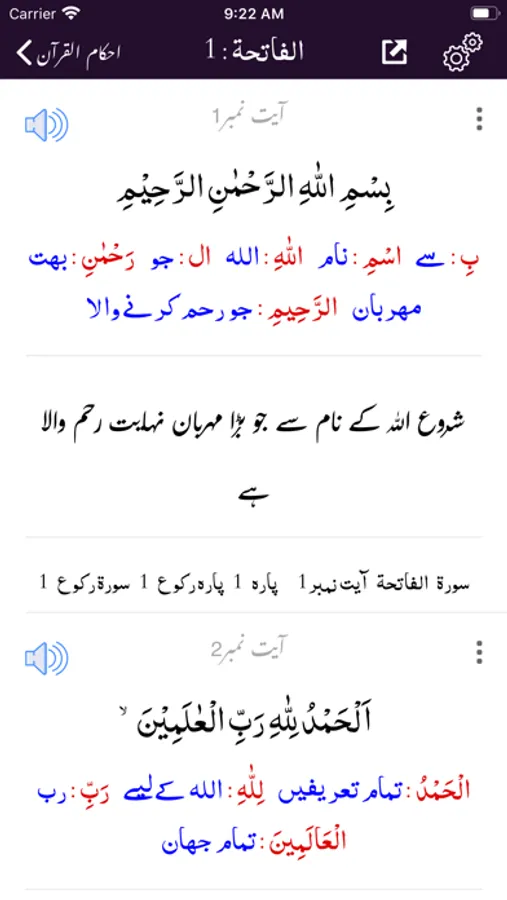 Carrier 9:22 AM
احکام القرآن الفاتحة : 1
آیت نمبر1
بِسْمِ اللّٰهِ الرَّحْمٰنِ الرَّحِیْمِ
بِ: سے اسْمِ: نام اللّٰهِ: الله ال: جو رَحْمٰنِ: بهت
مهربان الرَّحِیمِ: جو رحم کرنے والا
شروع اللہ کے نام سے جو بڑا مہربان نہایت رحم والا
ہے
سورة الفاتحة آیت نمبر1 پاره 1 پاره رکوع 1 سورة رکوع 1
آیت نمبر2
اَلْحَمْدُ لِلّٰهِ رَبِّ الْعٰلَمِیْنَ ۙ
الْحَمْدُ: تمام تعریفیں لِلّٰهِ: الله کے لیے رَبِّ: رب
الْعَالَمِینَ: تمام جهان